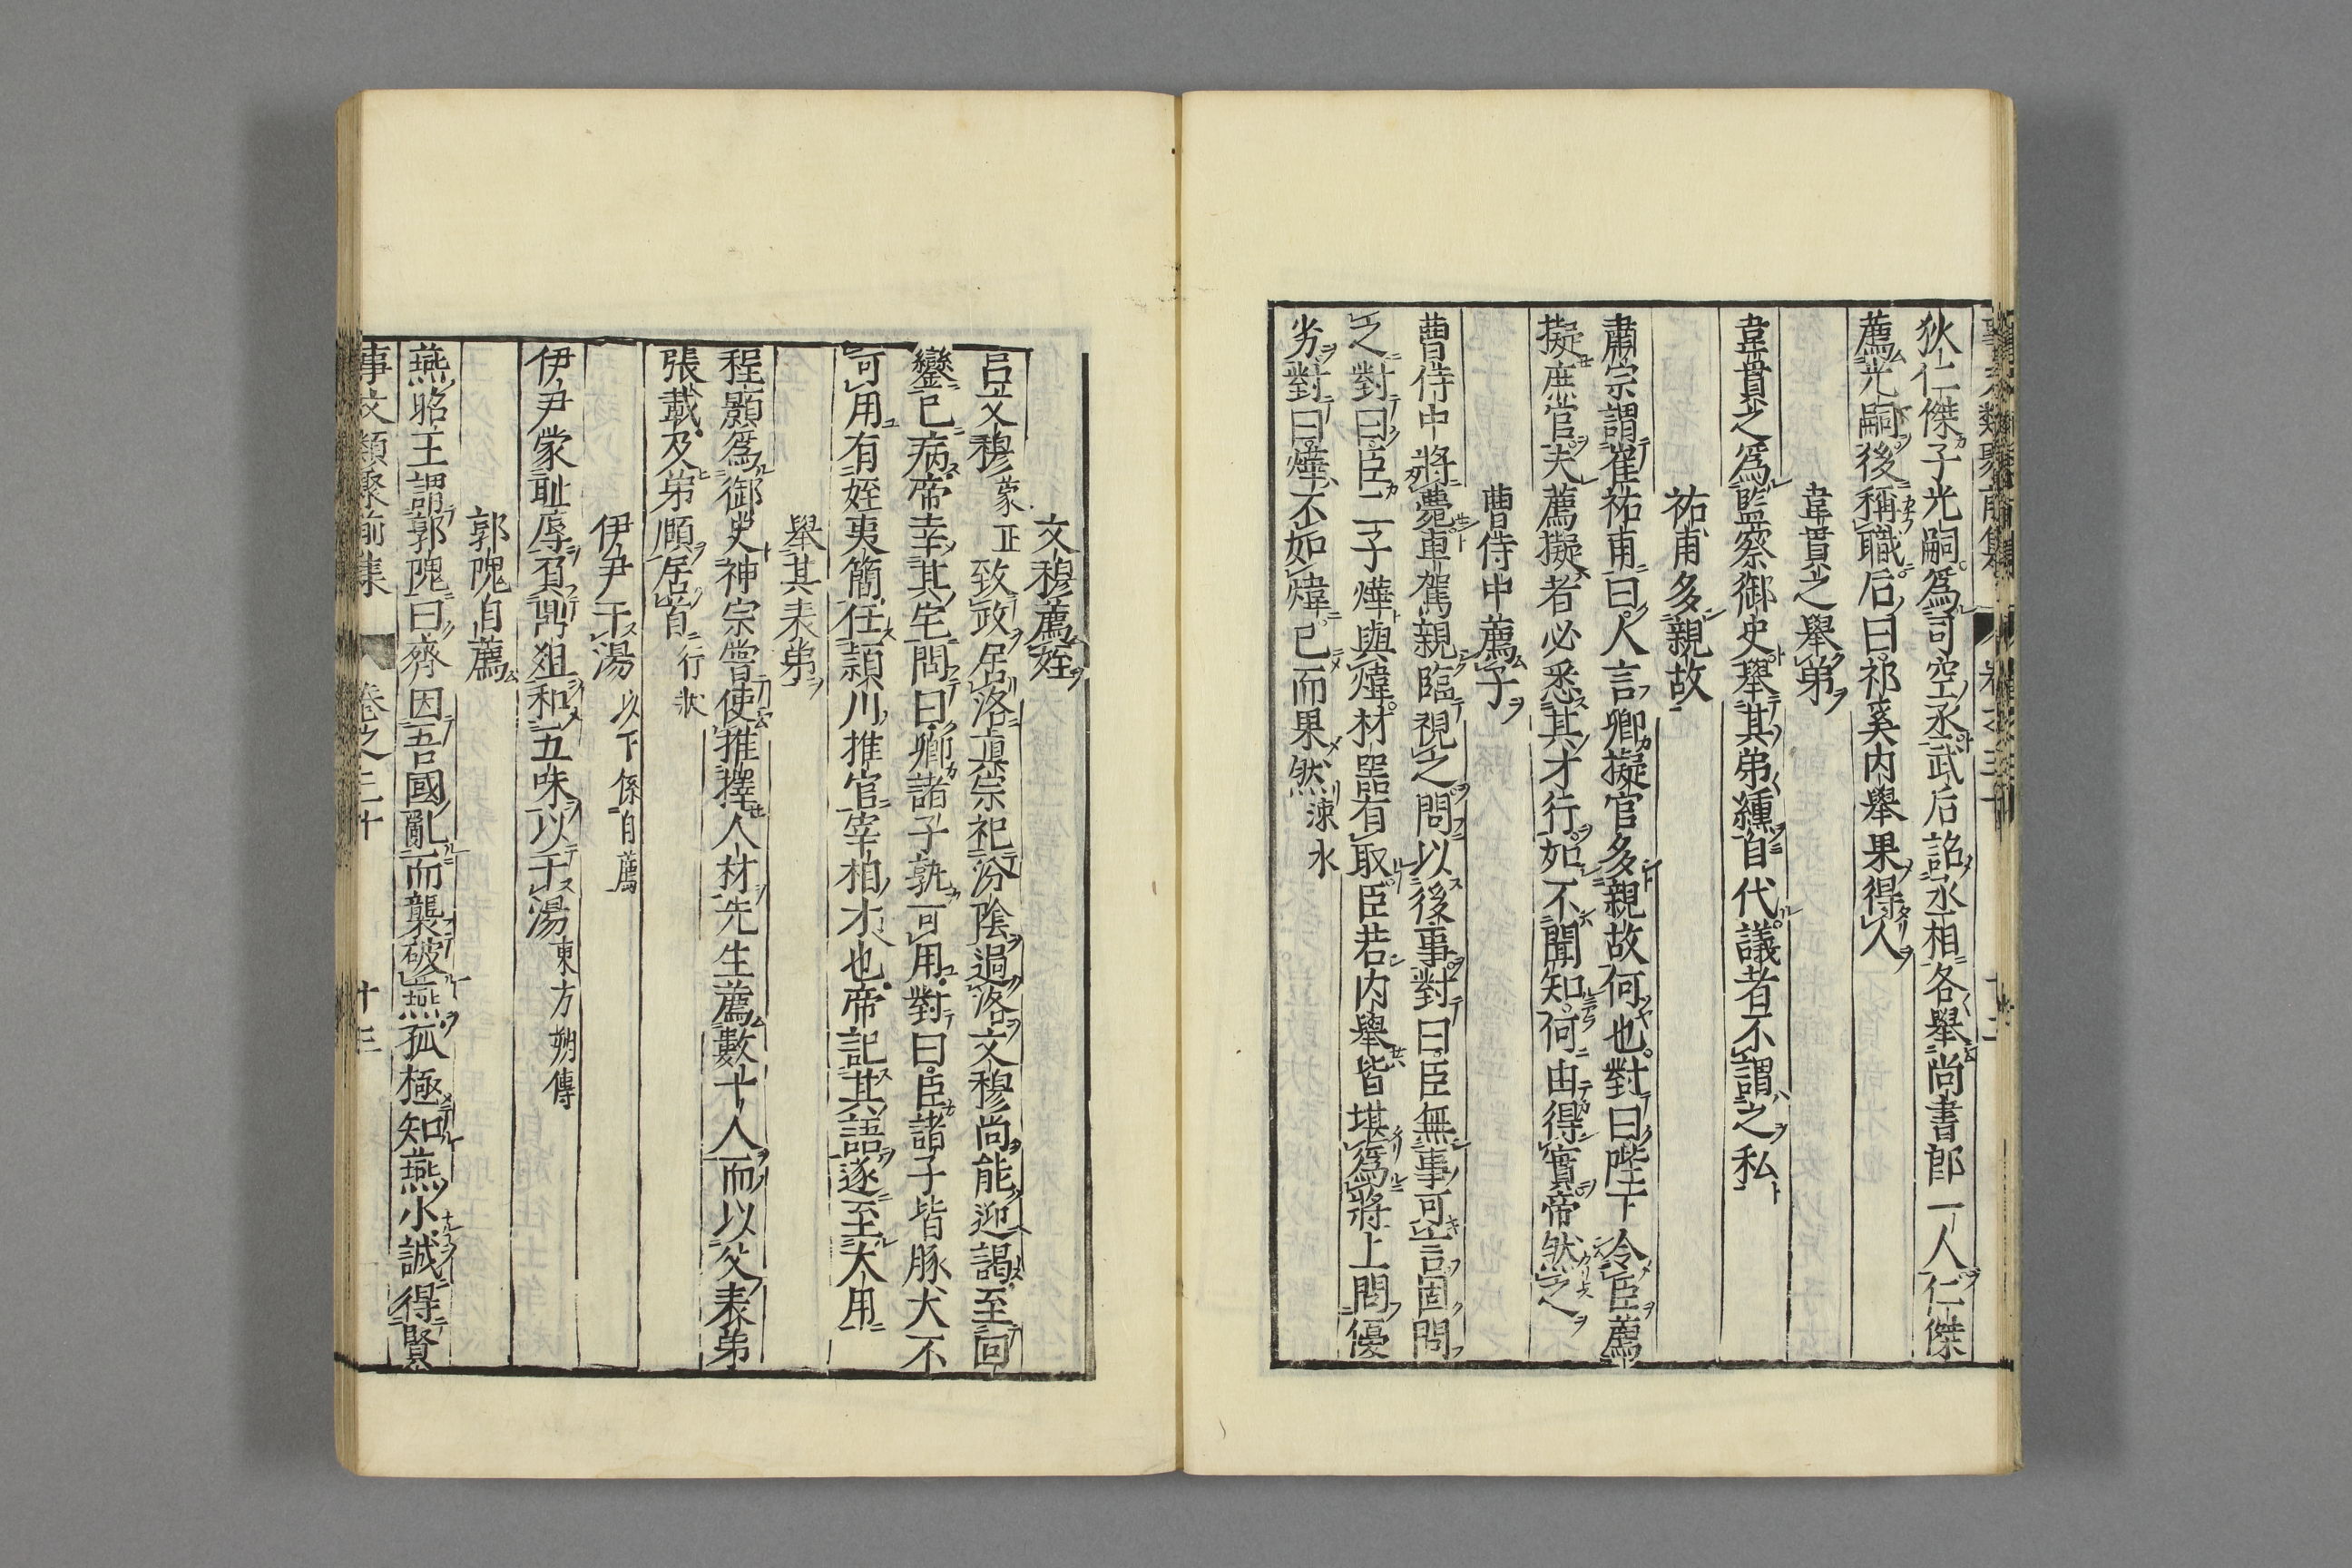 狄仁傑子光嗣爲司空丞武后詔丞相各舉尚書郎一人仁傑
薦光嗣後稱職后曰祁奚内舉果得人
韋貫之舉弟
韋貫之爲監察御史舉其弟纁自代議者不謂之私
祐甫多親故
肅宗謂崔祐甫曰人言卿擬官多親故何也對曰陛下令臣薦
擬庶官夫薦擬者必悉其才行如不聞知何由得實帝然之
曹侍中薦子
曹侍中將薨車駕親臨視之問以後事對曰臣無事可言固問
之對曰臣二子燁與煒材器有取臣若内舉皆堪爲將上問優
劣對曰燁不如煒已而果然涑水
文穆薦姪
呂文穆蒙正致政居洛眞宗祀汾陰過洛文穆尚能迎謁至回
鑾已病帝幸其宅問曰卿諸子孰可用對曰臣諸子皆豚犬不
可用有姪夷簡任頴川推官宰相才也帝記其語遂至大用
舉其表弟
程顥爲御史神宗嘗使推擇人材先生薦數十人而以父表弟
張載及弟頤居首行狀
伊尹干湯以下係自薦
伊尹蒙耻辱負鼎俎和五味以干湯東方朔傳
郭隗自薦
燕昭王謂郭隗曰齊因吾國亂而襲破燕孤極知燕小誠得賢
事文類聚前集 卷之三十 十三